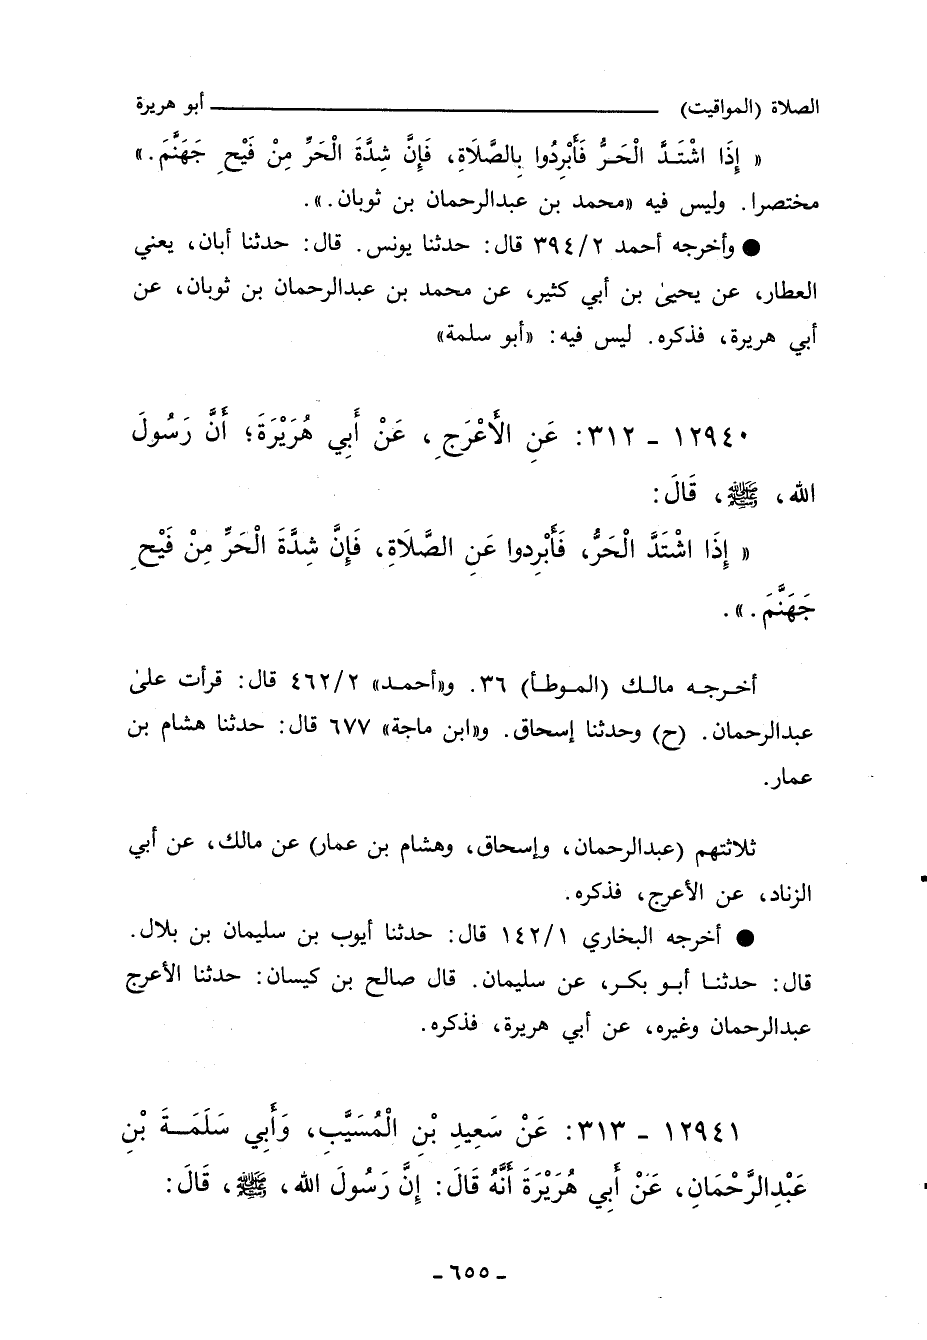 الصلاة (المواقيت) ـــــــــــــــــــــــــــــــــ أبو هريرة
« إِذَا اشْتَدَّ الْحَرُّ فَأَبْرِدُوا بِالصَّلَاةِ، فَإِنَّ شِدَّةَ الْحَرِّ مِنْ فَيْحِ جَهَنَّمَ. »
مختصرا. وليس فيه «محمد بن عبدالرحمان بن ثوبان. ».
● وأخرجه أحمد ٣٩٤/٢ قال: حدثنا يونس. قال: حدثنا أبان، يعني
العطار، عن يحيىٰ بن أبي كثير، عن محمد بن عبدالرحمان بن ثوبان، عن
أبي هريرة، فذكره. ليس فيه: «أبو سلمة»
١٢٩٤٠ - ٣١٢: عَنِ الأَعْرَجِ، عَنْ أَبِي هُرَيْرَةَ؛ أَنَّ رَسُولَ
الله، ﷺ، قَالَ:
« إِذَا اشْتَدَّ الْحَرُّ، فَأَبْرِدوا عَنِ الصَّلَاةِ، فَإِنَّ شِدَّةَ الْحَرِّ مِنْ فَيْحِ
جَهَنَّمَ. ».
أخرجه مالك (الموطأ) ٣٦. و«أحمد» ٤٦٢/٢ قال: قرأت علىٰ
عبدالرحمان. (ح) وحدثنا إسحاق. و«ابن ماجة» ٦٧٧ قال: حدثنا هشام بن
عمار.
ثلاثتهم (عبدالرحمان، وإسحاق، وهشام بن عمار) عن مالك، عن أبي
الزناد، عن الأعرج، فذكره.
● أخرجه البخاري ١٤٢/١ قال: حدثنا أيوب بن سليمان بن بلال.
قال: حدثنا أبو بكر، عن سليمان. قال صالح بن كيسان: حدثنا الأعرج
عبدالرحمان وغيره، عن أبي هريرة، فذكره.
١٢٩٤١ - ٣١٣: عَنْ سَعِيدِ بْنِ الْمُسَيَّبِ، وَأَبِي سَلَمَةَ بْنِ
عَبْدِالرَّحْمَانِ، عَنْ أَبِي هُرَيْرَةَ أَنَّهُ قَالَ: إِنَّ رَسُولَ الله، ﷺ، قَالَ:
- ٦٥٥ -